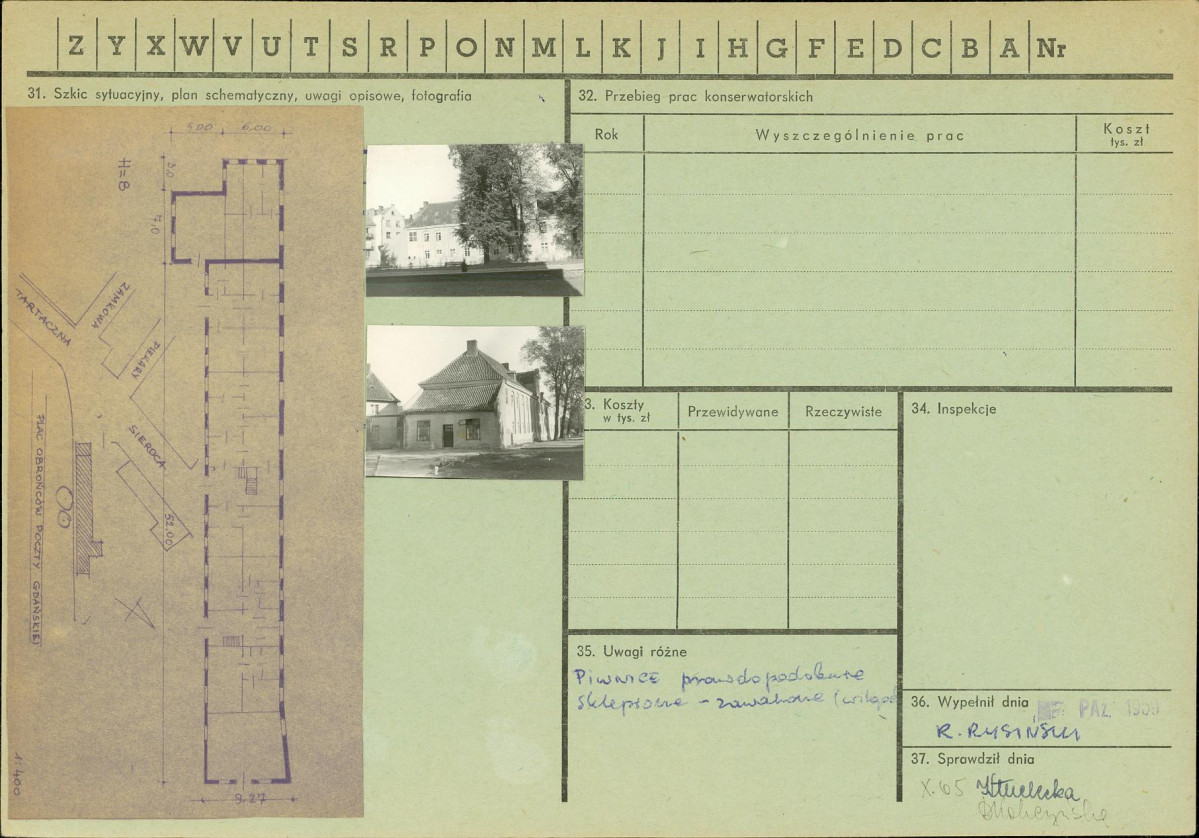 Z Y X W V U T S R P O N M L K J I H G F E D C B A Nr
31. Szkic sytuacyjny, plan schematyczny, uwagi opisowe, fotografia
5,00 6,00
H=8
3,0
7,0
TARTACZNA
ZAMKOWA
PIEKARY
SIEROCA
52.00
PLAC OBROŃCÓW POCZTY GDAŃSKIEJ
9.27
1:400
32. Przebieg prac konserwatorskich
Rok
Wyszczególnienie prac
Koszt
tys. zł
3. Koszty
w tys. zł
Przewidywane
Rzeczywiste
34. Inspekcje
35. Uwagi różne
PIWNICE prawdopodobnie
sklepione – zawalone
36. Wypełnił dnia
PAŹ. 1959
R. RYSIŃSKI
37. Sprawdził dnia
X.65